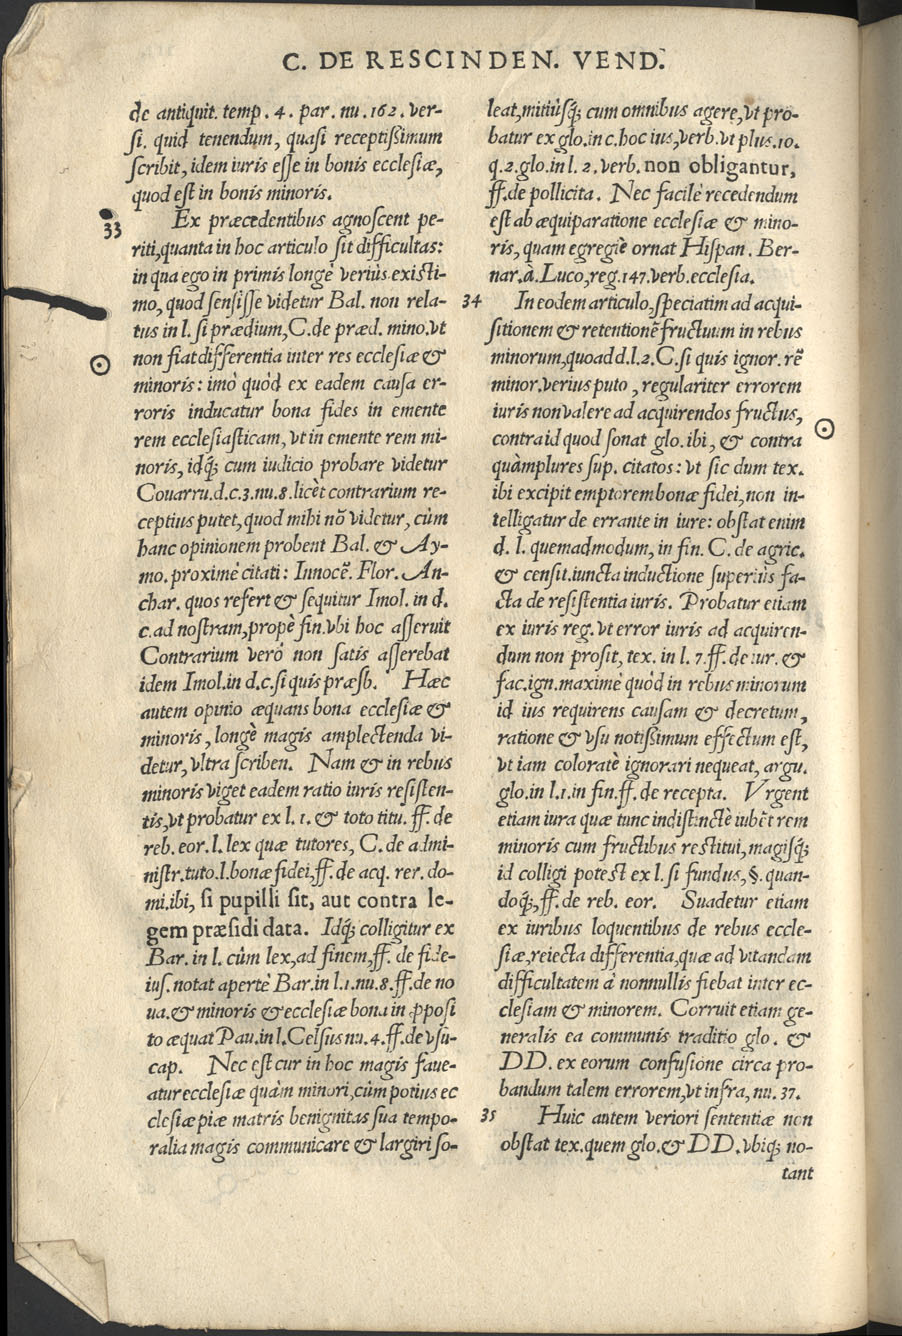 C. DE RESCINDEN. VEND.
de antiquit. temp. 4. par. nu. 162. ver-
ſi. quid tenendum, quaſi receptißimum
ſcribit, idem iuris eſſe in bonis eccleſiæ,
quod eſt in bonis minoris.
33 Ex præcedentibus agnoſcent pe-
riti, quanta in hoc articulo ſit difficultas:
in qua ego in primis longè verius existi-
mo, quod ſenſiſſe videtur Bal. non rela-
tus in l. ſi prædium, C. de præd. mino. vt
non fiat differentia inter res eccleſiæ &
minoris: imò quòd ex eadem cauſa er-
roris inducatur bona fides in emente
rem eccleſiaſticam, vt in emente rem mi-
noris, idq́; cum iudicio probare videtur
Couarru. d. c. 3. nu. 8. licèt contrarium re-
ceptius putet, quod mihi nō videtur, cùm
hanc opinionem probent Bal. & Ay-
mo. proximè citati: Innocē. Flor. An-
char. quos refert & ſequitur Imol. in d.
c. ad noſtram, propè fin. vbi hoc aſſeruit
Contrarium verò non ſatis aſſerebat
idem Imol. in d. c. ſi quis præsb. Hæc
autem opinio æquans bona eccleſiæ &
minoris, longè magis amplectenda vi-
detur, vltra ſcriben. Nam & in rebus
minoris viget eadem ratio iuris reſiſten-
tis, vt probatur ex l. 1. & toto titu. ff. de
reb. eor. l. lex quæ tutores, C. de admi-
niſtr. tuto. l. bonæ fidei, ff. de acq. rer. do-
mi. ibi, ſi pupilli ſit, aut contra le-
gem præſidi data. Idq́; colligitur ex
Bar. in l. cùm lex, ad finem, ff. de fide-
iuſ. notat apertè Bar. in l. 1. nu. 8. ff. de no
ua. & minoris & eccleſiæ bona in ꝓpoſi
to æquat Pau. in l. Celſus nu. 4. ff. de vſu-
cap. Nec eſt cur in hoc magis faue-
atur eccleſiæ quàm minori, cùm potius ec
cleſiæ piæ matris benignitas ſua tempo-
ralia magis communicare & largiri ſo-
leat, mitiùſq́; cum omnibus agere, vt pro-
batur ex glo. in c. hoc ius, verb. vt plus. 10.
q. 2. glo. in l. 2. verb. non obligantur,
ff. de pollicita. Nec facilè recedendum
eſt ab æquiparatione eccleſiæ & mino-
ris, quam egregiè ornat Hiſpan. Ber-
nar. à Luco, reg. 147. verb. eccleſia.
34 In eodem articulo, ſpeciatim ad acqui-
ſitionem & retentionē fructuum in rebus
minorum, quoad d. l. 2. C. ſi quis ignor. rē
minor. verius puto, regulariter errorem
iuris non valere ad acquirendos fructus,
contra id quod ſonat glo. ibi, & contra
quàmplures ſup. citatos: vt ſic dum tex.
ibi excipit emptorem bonæ fidei, non in-
telligatur de errante in iure: obſtat enim
d. l. quemadmodum, in fin. C. de agric.
& cenſit. iuncta inductione ſuperiùs fa-
cta de reſiſtentia iuris. Probatur etiam
ex iuris reg. vt error iuris ad acquiren-
dum non proſit, tex. in l. 7. ff. de iur. &
fac. ign. maximè quòd in rebus minorum
id ius requirens cauſam & decretum,
ratione & vſu notißimum effectum eſt,
vt iam coloratè ignorari nequeat, argu.
glo. in l. 1. in fin. ff. de recepta. Vrgent
etiam iura quæ tunc indiſtinctè iubēt rem
minoris cum fructibus restitui, magiſq́;
id colligi potest ex l. ſi fundus, §. quan-
doq́;, ff. de reb. eor. Suadetur etiam
ex iuribus loquentibus de rebus eccle-
ſiæ, reiecta differentia, quæ ad vitandam
difficultatem à nonnullis fiebat inter ec-
cleſiam & minorem. Corruit etiam ge-
neralis ea communis traditio glo. &
DD. ex eorum confuſione circa pro-
bandum talem errorem, vt infra, nu. 37.
35 Huic autem veriori ſententiæ non
obſtat tex. quem glo. & DD. vbiq́; no-
tant